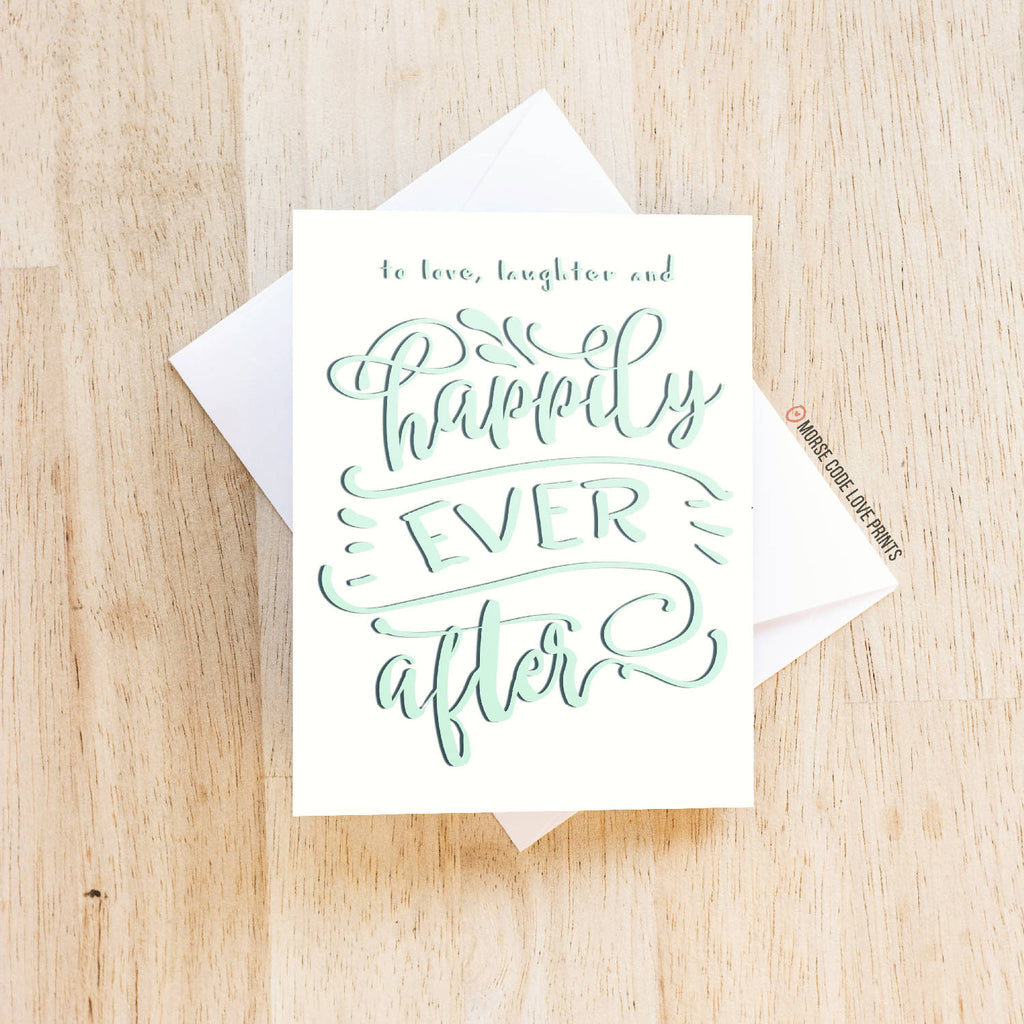 to love, laughter and
happily
EVER
after
MORSE CODE LOVE PRINTS